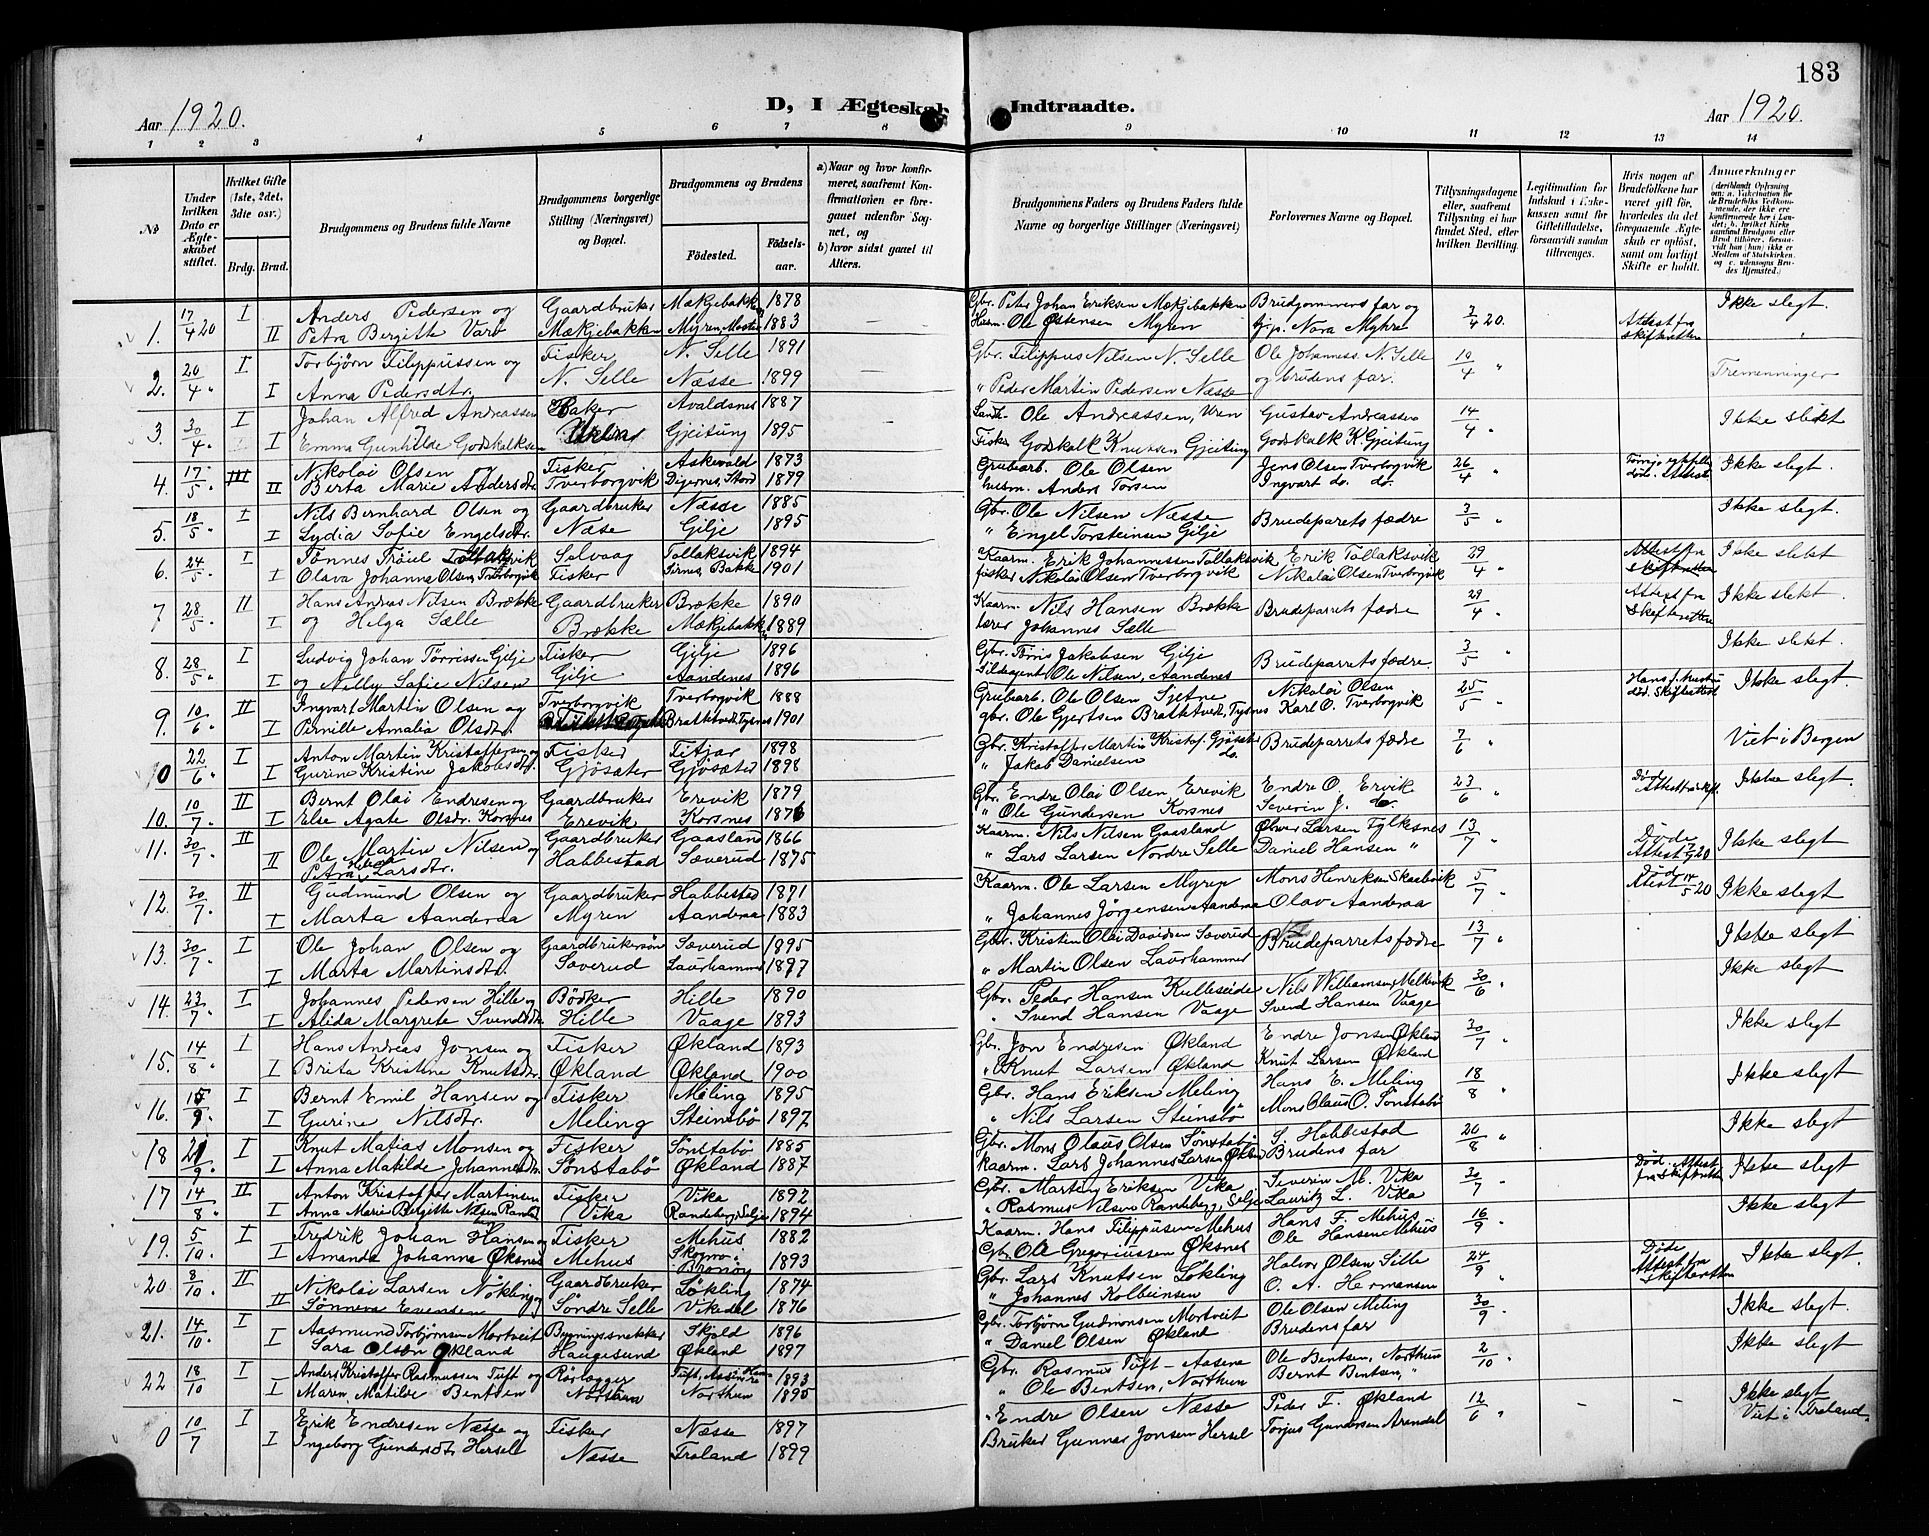 183
Aar 1920.
D, I Ægteskab Indtraadte.
Aar 1920.
1 2 3 4 5 6 7 8 9 10 11 12 13 14
No
Under hvilken Dato er Ægteskabet stiftet.
Hvilket Gifte (1ste, 2det, 3die osv.)
Brdg. Brud.
Brudgommens og Brudens fulde Navne
Brudgommens borgerlige Stilling (Næringsvei) og Bopæl.
Brudgommens og Brudens
Fødested.
Fødselsaar.
a) Naar og hvor konfirmeret, saafremt Konfirmationen er foregaaet udenfor Sognet, og
b) hvor sidst gaaet til Alters.
Brudgommens Faders og Brudens Faders fulde Navne og borgerlige Stillinger (Næringsvei)
Forlovernes Navne og Bopæl.
Tillysningsdagene eller, saafremt Tillysning ei har fundet Sted, efter hvilken Bevilling.
Legitimation for Indskud i Enkekassen samt for Giftetilladelse, forsaavidt saadan tiltrænges.
Hvis nogen af Brudefolkene har været gift før, hvorledes da det foregaaende Ægteskab er opløst, samt om lovligt Skifte er holdt.
Anmærkninger
1. 17/4 20 I Anders Pedersen og Gaardbruker Mækjebakken 1878 — Gbr. Peter Johan Eriksen Mækjebakken Brudgommens far og 2/4 20. Ikke slegt.
II Petra Bergitte Vare Mækjebakken Myren, Moster 1883 Husm. Ole Østensen Myren gjp. Nora Myhre Attest fra skifteretten
2. 20/4 " I Torbjørn Filippussen og Fisker N. Selle 1891 — Gbr. Filippus Nilsen N. Selle Ole Johanness. N. Selle 10/4 " Tremenninger
I Anna Pedersdtr. N. Selle Næsse 1899 " Peder Martin Pedersen Næsse og brudens far.
3. 30/4 " I Johan Alfred Andreassen Baker Avaldsnes 1887 Ole Andreassen, Uren Gustav Andreassen 14/4 " Ikke slekt
I Emma Gunhilde Godskalksen Gjeitung 1895 Fisker Godskalk Knutsen Gjeitung Godskalk K. Gjeitung
4. 17/5 " III Nikolai Olsen Fisker Askevold 1873 Grubearb. Ole Olsen Jens Olsen Tverborgvik 26/4 " Ikke slegt.
II Berta Marie Andersdtr. Tverborgvik Digernes, Stord 1879 husm. Anders Torsen Ingvart do. do.
5. 18/5 " I Nils Bernhard Olsen og Gaardbruker Næsse 1885 Gbr. Ole Nilsen Næsse Brudeparrets fædre 3/5 " Ikke slegt.
I Lydia Sofie Engelsdtr. Næsse Gilje 1895 " Engel Torsteinsen Gilje
6. 24/5 " I Tønnes Trøil Tollaksvik Salvaag Tollaksvik 1894 Kaarm. Erik Johannessen Tollaksvik Erik Tollaksvik 29/4 " Attest fra skifteretten Ikke slekt
I Olava Johanna Olsen, Tverborgvik Fisker Bakke 1901 fisker Nikolai Olsen Tverborgvik Nikolai Olsen Tverborgvik
7 28/5 " II Hans Andreas Nilsen Brække Gaardbruker Brække 1890 Kaarm. Nils Hansen Brække Brudeparrets fædre 29/4 " Attest fra Skifteretten Ikke slekt.
I og Helga Sælle Brække Mækjebakken 1889 lærer Johannes Sælle
8. 28/5 " I Ludvig Johan Tørrissen Gilje Fisker Gilje 1896 Gbr. Tørris Jakobsen Gilje Brudeparrets fædre. 3/5 " Ikke slekt.
I og Nelly Sofie Nilsen Gilje Aandenes 1896 Sildeagent Ole Nilsen, Aandenes
9. 10/6 " II Ingvart Martin Olsen og Tverborgvik Tverborgvik 1888 Grubearb. Ole Olsen Sjetne Nikolai Olsen 25/5 " Ikke slegt.
I Pernille Amalia Olsdtr. Brakhtvedt, Tysnes 1901 gbr. Ole Gjertsen Brakhtvedt, Tysnes Karl O. Tverborgvik
0 22/6 " I Anton Martin Kristoffersen og Fisker Fitjar 1898 Gbr. Kristoffer Martin Kristof. Gjøsæter Brudeparrets fædre 7/6 " Viet i Bergen
I Gurine Kristine Jakobsdtr. Gjøsæter Gjøsæter 1898 " Jakob Danielsen do.
10. 10/7 " II Bernt Olai Endresen og Gaardbruker Erevik 1879 Gbr. Endre Olai Olsen Erevik Endre O. Ervik 23/6 " Død Ikke slegt.
I Else Agate Olsdr. Korsnes Erevik Korsnes 1876 " Ole Gundersen Korsnes Severin J. do.
11. 30/7 " II Ole Martin Nilsen og Gaardbruker Gaasland 1866 Kaarm. Nils Nilsen Gaasland Oliver Larsen Fylkesnes 13/7 " Døde Attest 17/7 20 Ikke slegt
II Petra Larsdtr. Habbestad Sæverud 1875 " Lars Larsen Nordre Selle Daniel Hansen "
12. 30/7 " II Gudmund Olsen og Gaardbruker Habbested 1871 Kaarm. Ole Larsen Myren Mons Henriksen Skaalevik 5/7 " Død Attest 14/5 20 Ikke slegt
I Marta Aanderaa Myren Aanderaa 1883 " Johannes Jørgensen Aanderaa Olav Aanderaa
13. 30/7 " I Ole Johan Olsen og Gaardbrukersøn Sæverud 1895 Gbr. Kristen Olai Davidsen Sæverud Brudeparrets fædre 13/7 " Ikke slegt
I Marta Martinsdtr. Sæverud Laurhammer 1897 " Martin Olsen Laurhammer
14. 23/7 " I Johannes Pedersen Hille og Bødker Hille 1890 Gbr. Peder Hansen Kulleseide Nils Wilhamsen, Melkevik 30/6 " Ikke slegt
I Alida Margrete Svendsdtr. Hille Vaage 1893 " Svend Hansen Vaage Svend Hansen Vaage
15. 14/8 " I Hans Andreas Jonsen og Fisker Økland 1893 Gbr. Jon Endresen Økland Endre Jonsen Økland 30/7 " Ikke slegt
I Brita Kristine Knutsdtr. Økland Økland 1900 " Knut Larsen Økland Knut Larsen Økland
16. 15/9 " I Bernt Emil Hansen og Fisker Meling 1895 Gbr. Hans Eriksen Meling Hans E. Meling 18/8 " Ikke slegt
I Gurine Nilsdtr. Meling Steinsbø 1897 " Nils Larsen Steinsbø Mons Olaus O. Sønstabø
18 21/9 " I Knut Matias Monsen og Fisker Sønstabø 1885 Gbr. Mons Olaus Olsen Sønstabø S. Habbestad 20/8 " Ikke slegt
I Anna Matilde Johannesdtr. Sønstabø Økland 1887 Kaarm. Lars Johannes Larsen Økland Brudens far
17 14/8 " II Anton Kristoffer Martinsen Fisker Vika 1892 Gbr. Martin Eriksen Vika Severin M. Vika 30/7 " Død. Attest fra Skifteretten Ikke slegt
I Anna Marie Bergitte Nilsen Vika Randeberg, Selje 1894 " Rasmus Nilsen Randeberg, Selje Lauritz L. Vika
19. 5/10 " I Fredrik Johan Hansen og Fisker Mehus 1882 Kaarm. Hans Filippusen Mehus Hans F. Mehus 16/9 " Ikke slegt
I Amanda Johanna Øksnes Mehus Brønøy 1893 Gbr. Ole Gregoriussen Øksnes Ole Hansen Mehus
20. 8/10 " II Nikolai Larsen Nökling og Gaardbruker Løkling 1874 Gbr. Lars Knutsen Løkling Halvor Olsen Sille 24/9 " Døde Attest fra Skifteretten Ikke slegt
II Sønneva Evensen Søndre Selle Vikedal 1876 " Johannes Kolbeinsen O. A. Hermansen
21. 14/10 " I Aasmund Torbjørnsen Mortveit Bygningssnekker Skjold 1896 Gbr. Torbjørn Gudmonsen Mortveit Ole Olsen Meling 30/9 " Ikke slegt.
I Sara Olsen Økland Haugesund Økland 1897 " Daniel Olsen Økland Brudens far
22 18/10 I Anders Kristoffer Rasmussen Tuft og Rørlegger 1893 Gbr. Rasmus Tuft - Aasene Ole Bentsen, Northun 2/10 " Ikke slegt
I Maren Matilde Bentsen Northun Northun 1895 " Ole Bentsen, Northun Bernt Bentsen, "
0 10/7 I Erik Endresen Næsse og Fisker Næsse 1897 " Endre Olsen Næsse Peder F. Økland 12/6 " — — Ikke slegt
I Ingeborg Gundersdtr. Hersel Næsse Froland 1899 Bruker Gunnar Jonsen Hersel Torjus Gundersen Arendal Viet i Froland.